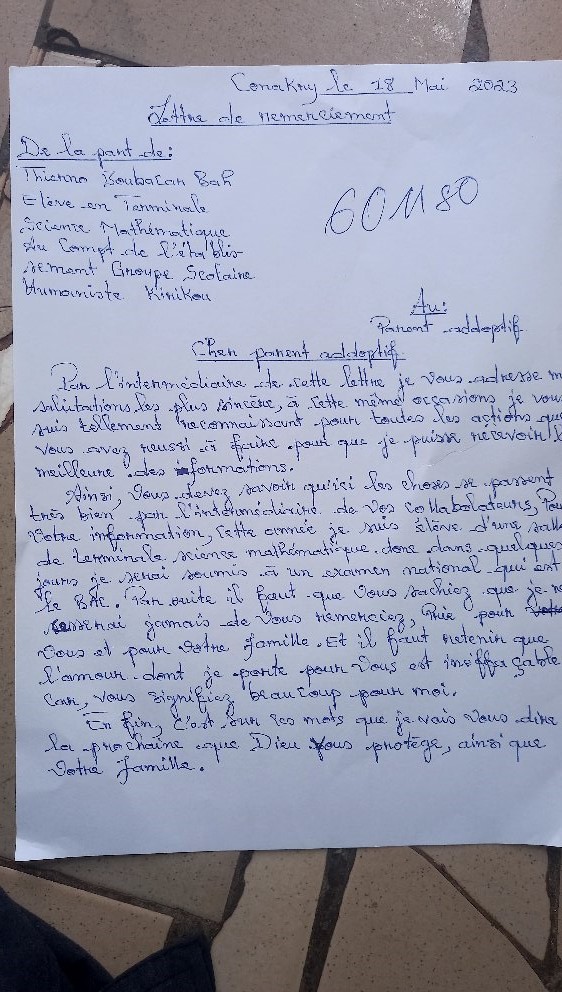 Conakry le 18 Mai 2023
Lettre de remerciement
De la part de:
Thierno Boubacar Bah
Elève en Terminale
Science Mathématique
Au Compt de l'établis-
sement Groupe Scolaire
Humaniste Kirikou
601180
Au:
Parent addoptif
Cher parent addoptif
Par l'intermédiaire de cette lettre je vous adresse m
salutations les plus sincère, à cette même occasions je vous
suis tellement reconnaissant pour toutes les actions que
vous avez reussi à faire pour que je puisse récevoir
meilleure des formations.
Ainsi, Vous devez savoir qu'ici les choses se passent
très bien par l'intermédiaire de vos collabolateurs, Pour
votre information, cette année je suis élève d'une salle
de terminale science mathématique donc dans quelques
jours je serai soumis à un examen national qui est
le BAC. Par suite il faut que vous sachiez que je ne
cesserai jamais de vous remerciez, Prie pour
vous et pour votre famille. Et il faut retenir que
l'amour dont je porte pour vous est ineffaçable
car, vous signifiez beaucoup pour moi.
En fin, c'est sur ses mots que je vais vous dire
la prochaine que Dieu vous protège, ainsi que
votre famille.